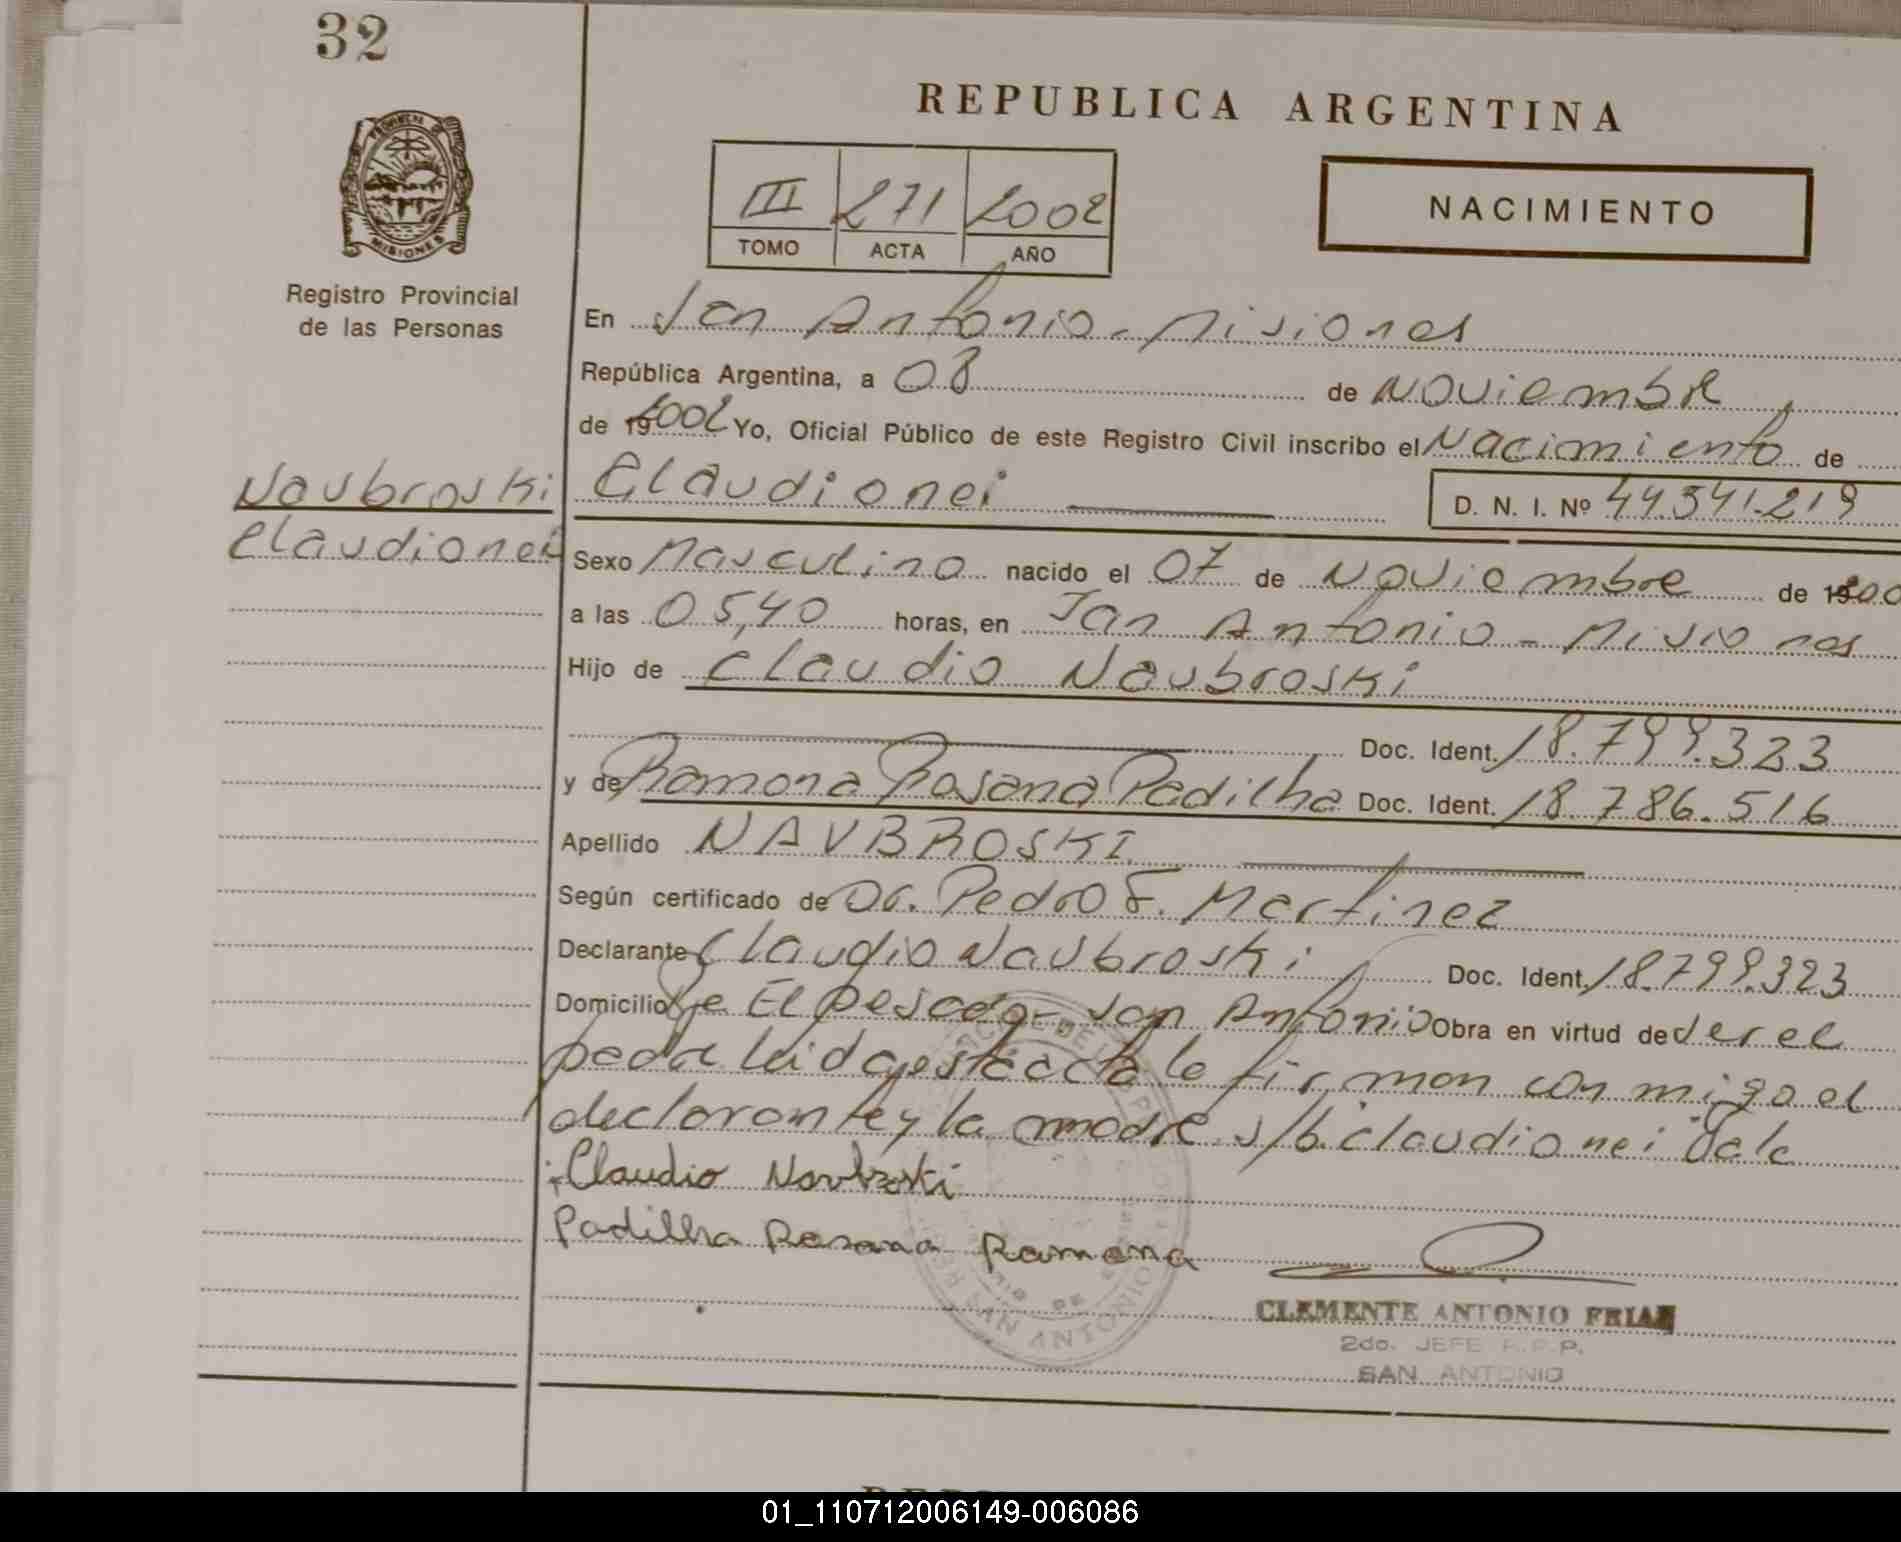 32
REPUBLICA ARGENTINA
III 271 2002
TOMO ACTA AÑO
NACIMIENTO
PROVINCIA DE
MISIONES
Registro Provincial
de las Personas
En San Antonio - Misiones
República Argentina, a 08 de Noviembre
de 192002 Yo, Oficial Público de este Registro Civil inscribo el Nacimiento de
Naubroski
Claudionei
Claudionei
D. N. I. Nº 44.541.219
Sexo Masculino nacido el 07 de Noviembre de 19200
a las 05,40 horas, en San Antonio - Misiones
Hijo de Claudio Naubroski
Doc. Ident. 18.799.323
y de Ramona Rosana Padilha Doc. Ident. 18.786.516
Apellido NAUBROSKI
Según certificado de Dr. Pedro F. Martinez
Declarante Claudio Naubroski Doc. Ident. 18.799.323
Domicilio El Pesado - San Antonio Obra en virtud de ser el
padre leida esta acta la firman conmigo el
declarante y la madre s/b. claudionei Vale
Claudio Naubroski
Padilha Rosana Ramona
SAN ANTONIO
CLEMENTE ANTONIO FRIAS
2do. JEFE R.P.P.
SAN ANTONIO
01_110712006149-006086